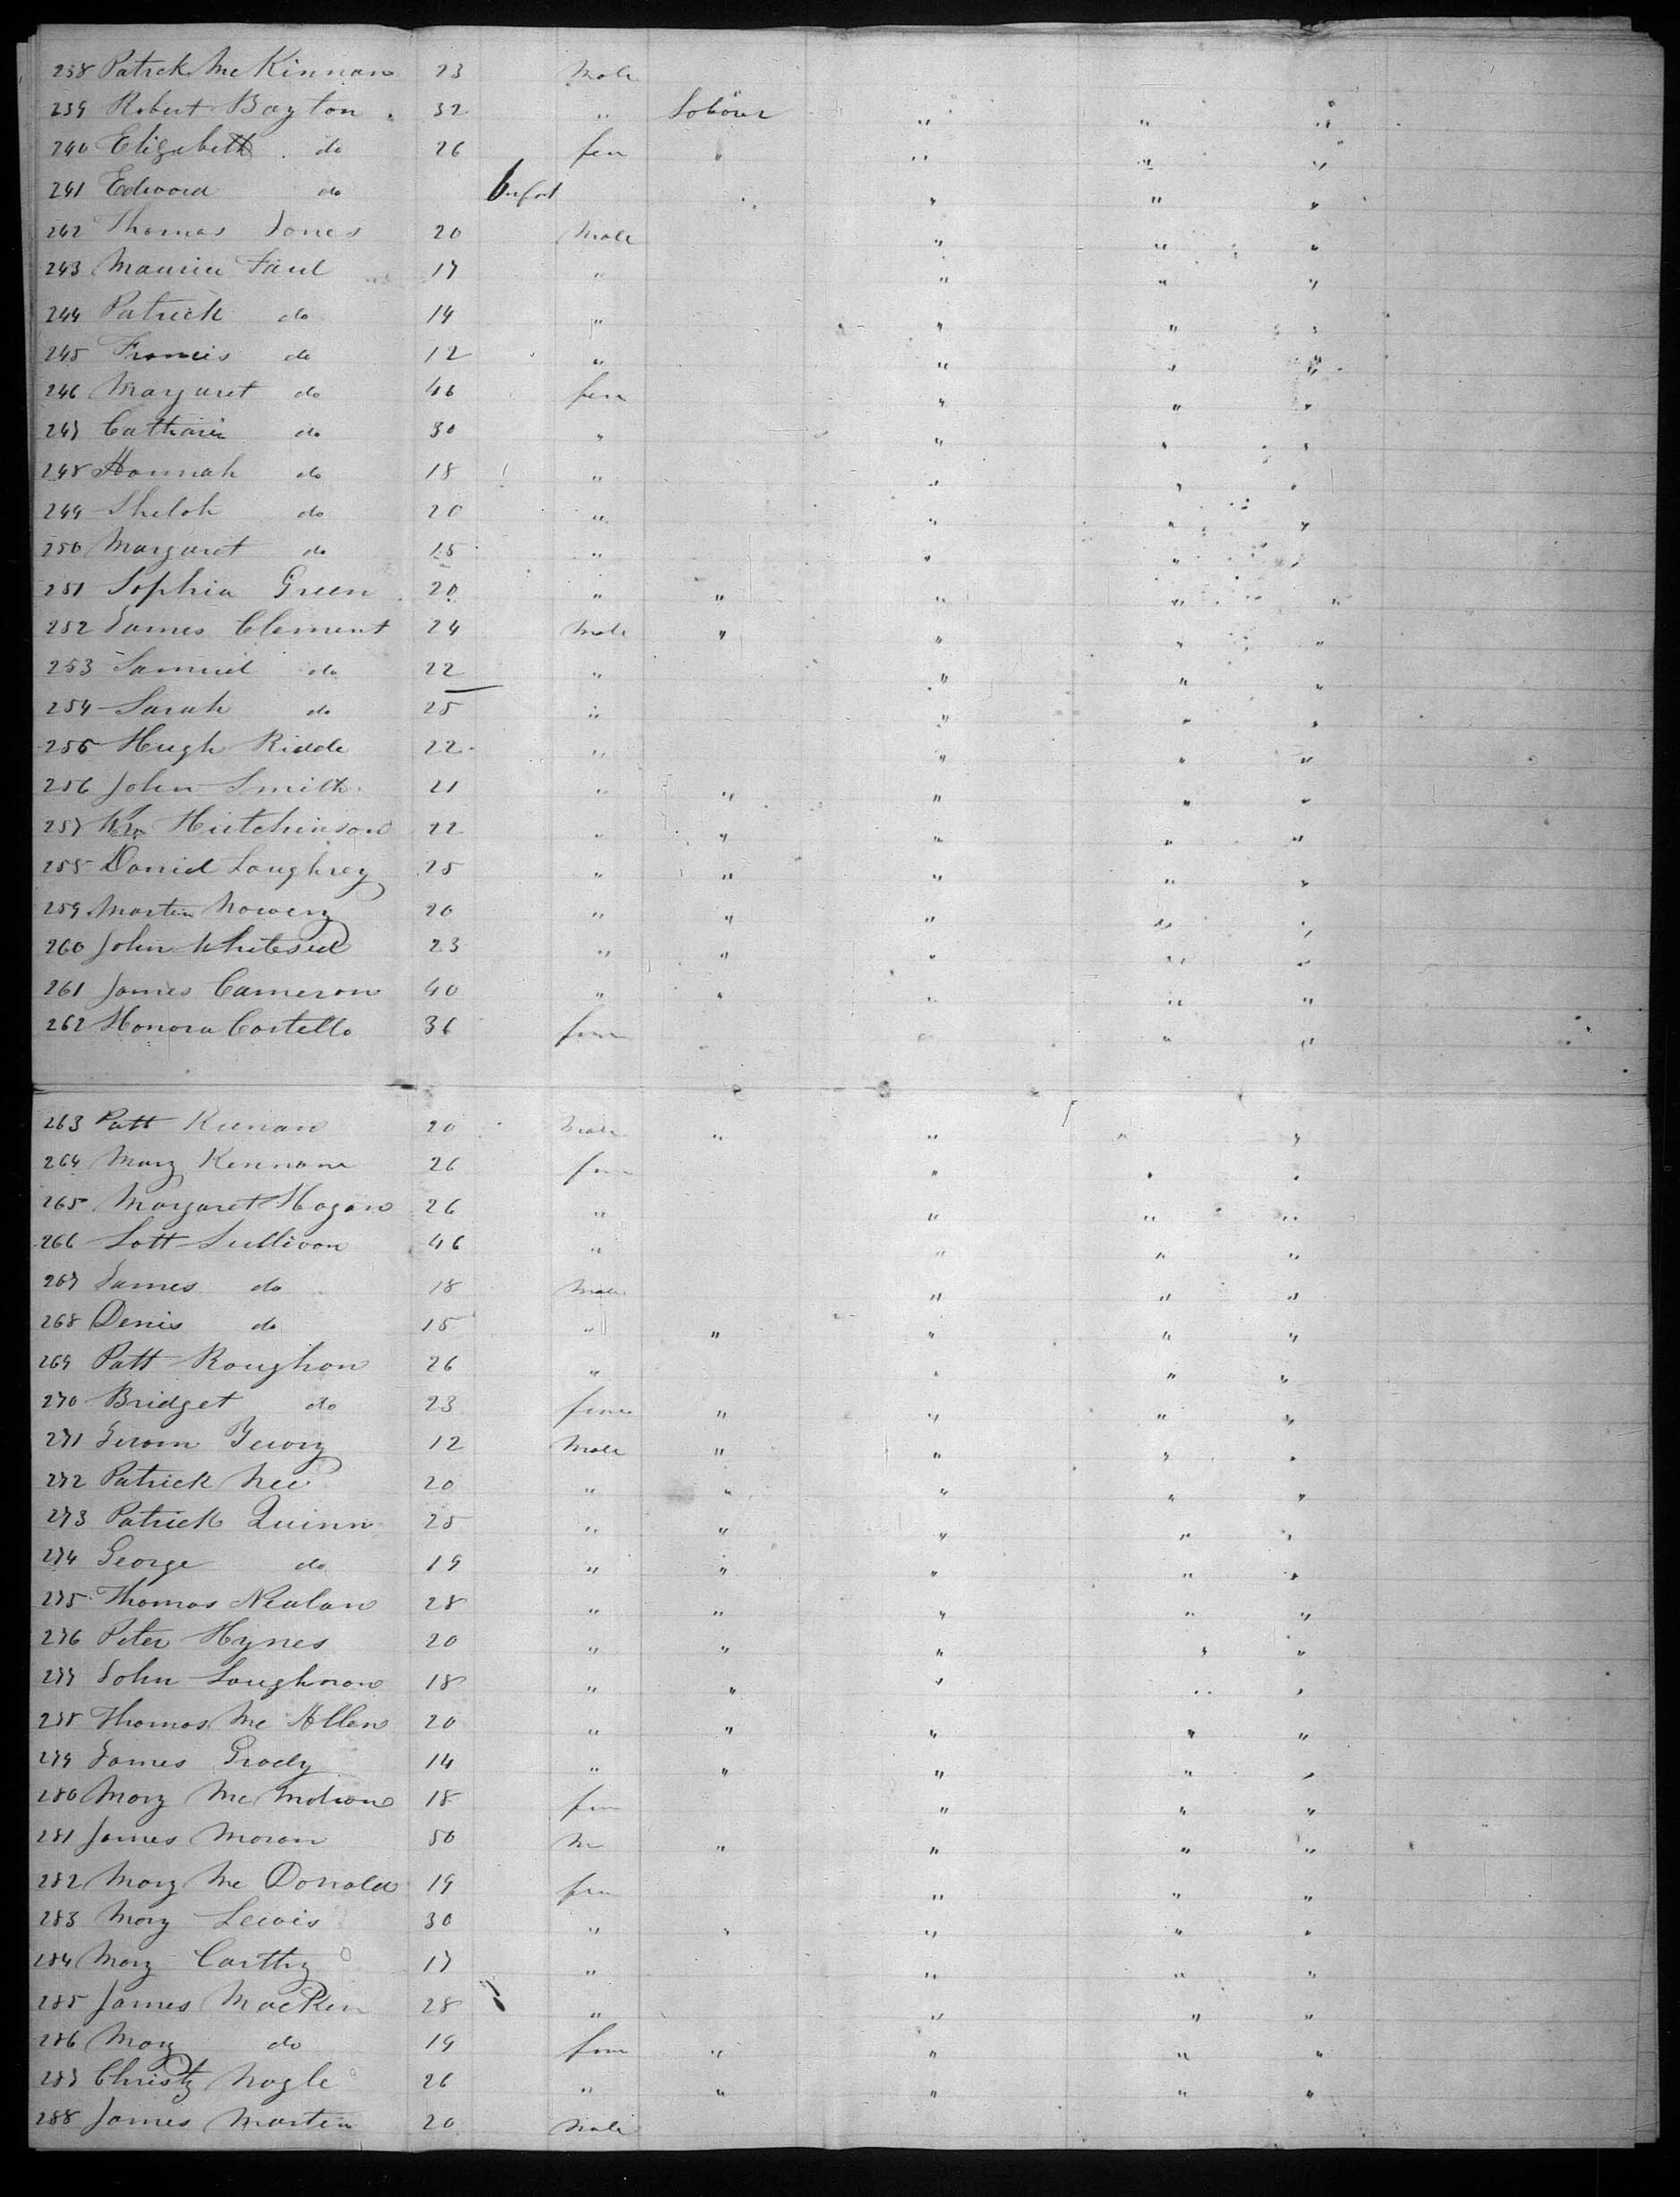 238 Patrck McKinnan 23 Male
239 Robert Bayton 32 " Labour " " "
240 Elizabeth do 26 fem " " " "
241 Edward do Infant " " " "
242 Thomas Jones 20 Male " " "
243 Maurice Faul 17 " " " "
244 Patrick do 14 " " " "
245 Francis do 12 " " " "
246 Margaret do 46 fem " " "
247 Catharin do 30 " " " "
248 Hannah do 18 " " " "
249 Shelah do 20 " " " "
250 Margaret do 15 " " " "
251 Sophia Green 20 " " " " "
252 James Clement 24 Male " " " "
253 Samuel do 22 " " " "
254 Sarah do 25 " " " "
255 Hugh Riddle 22 " " " "
256 John Smith 21 " " " " "
257 Wm Hutchinson 22 " " " " "
258 Daniel Loughrey 25 " " " " "
259 Martin 20 " " " " "
260 John Whitesid 23 " " " " "
261 James Cameron 40 " " " " "
262 Honora Costello 36 fem " " "
263 Patt Keenan 20 Male " " " "
264 Mary Kennan 26 fem " " "
265 Margaret Hogan 26 " " " "
266 Lott Sullivan 46 " " " "
267 James do 18 Male " " "
268 Denis do 15 " " " " "
269 Patt Roughan 26 " " " "
270 Bridget do 23 fem " " " "
271 12 Male " " " "
272 Patrick Nee 20 " " " " "
273 Patrick Quinn 25 " " " " "
274 George do 19 " " " " "
275 Thomas Nealan 28 " " " " "
276 Peter Hynes 20 " " " " "
277 John Loughnan 18 " " " " "
278 Thomas Mc Allen 20 " " " " "
279 James Grady 14 " " " " "
280 Mary Mc Mahan 18 fem " " "
281 James Moran 50 M " " " "
282 Mary Mc Donald 19 fem " " "
283 Mary Lewis 30 " " " " "
284 Mary Carthy 17 " " " "
285 James MacKen 28 " " " "
286 Mary do 19 fem " " " "
287 Christy Nagle 26 " " " " "
288 James Martin 20 Male